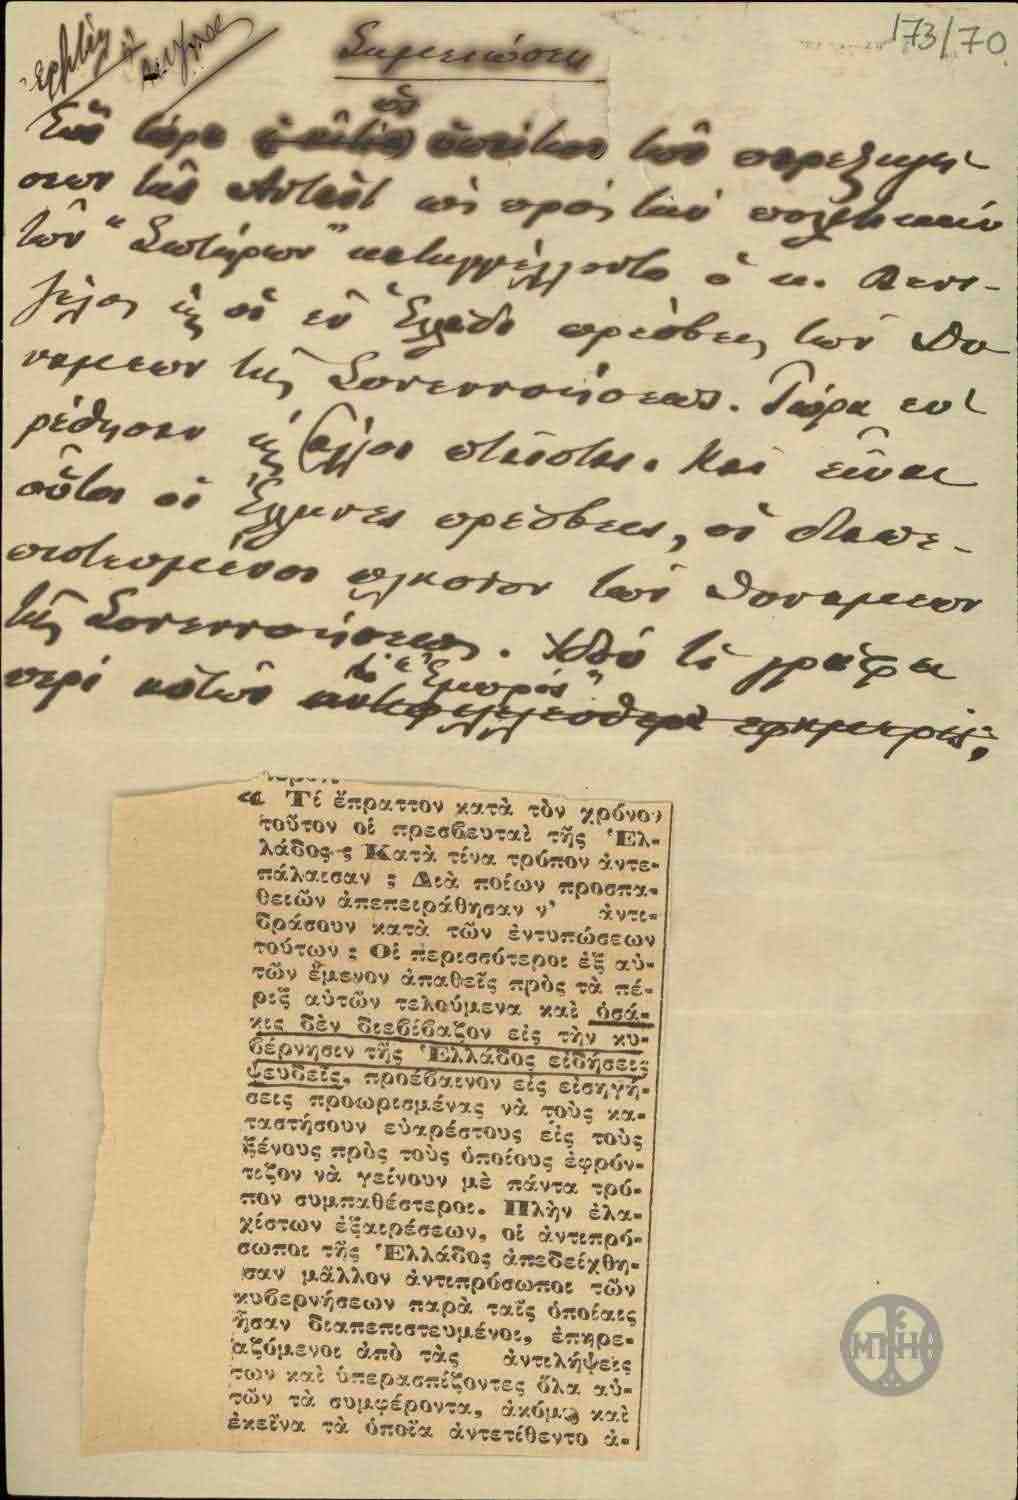 173/70
Σημειώσεις
Ἕως τώρα ὡς αἴτιοι τῶν παρεξηγή-
σεων τῆς Ἀντάντ ὡς πρὸς τὴν πολιτικὴν
τῶν "Σωτήρων" κατηγγέλλοντο ὁ κ. Βενι-
ζέλος καὶ οἱ ἐν Ἑλλάδι πρέσβεις τῶν Δυ-
νάμεων τῆς Συνεννοήσεως. Τώρα εὑ-
ρέθησαν καὶ ἄλλοι πταῖσται. Καὶ εἶναι
οὗτοι οἱ Ἕλληνες πρέσβεις, οἱ διαπε-
πιστευμένοι πλησίον τῶν Δυνάμεων
τῆς Συνεννοήσεως. Ἰδοὺ τί γράφει
περὶ αὐτῶν τὸ "Ἐμπρός"
« Τί ἔπραττον κατὰ τὸν χρόνον
τοῦτον οἱ πρεσβευταὶ τῆς Ἑλ-
λάδος ; Κατὰ τίνα τρόπον ἀντε-
πάλαισαν ; Διὰ ποίων προσπα-
θειῶν ἀπεπειράθησαν ν' ἀντι-
δράσουν κατὰ τῶν ἐντυπώσεων
τούτων ; Οἱ περισσότεροι ἐξ αὐ-
τῶν ἔμενον ἀπαθεῖς πρὸς τὰ πέ-
ριξ αὐτῶν τελούμενα καὶ ὁσά-
κις δὲν διεβίβαζον εἰς τὴν κυ-
βέρνησιν τῆς Ἑλλάδος εἰδήσεις
ψευδεῖς, προέβαινον εἰς εἰσηγή-
σεις προωρισμένας νὰ τοὺς κα-
ταστήσουν εὐαρέστους εἰς τοὺς
ξένους πρὸς τοὺς ὁποίους ἐφρόν-
τιζον νὰ γείνουν μὲ πάντα τρό-
πον συμπαθέστεροι. Πλὴν ἐλα-
χίστων ἐξαιρέσεων, οἱ ἀντιπρό-
σωποι τῆς Ἑλλάδος ἀπεδείχθη-
σαν μᾶλλον ἀντιπρόσωποι τῶν
κυβερνήσεων παρὰ ταῖς ὁποίαις
ἦσαν διαπεπιστευμένοι, ἐπηρε-
αζόμενοι ἀπὸ τὰς ἀντιλήψεις
των καὶ ὑπερασπίζοντες ὅλα αὐ-
τῶν τὰ συμφέροντα, ἀκόμη καὶ
ἐκεῖνα τὰ ὁποῖα ἀντετίθεντο ἀ-